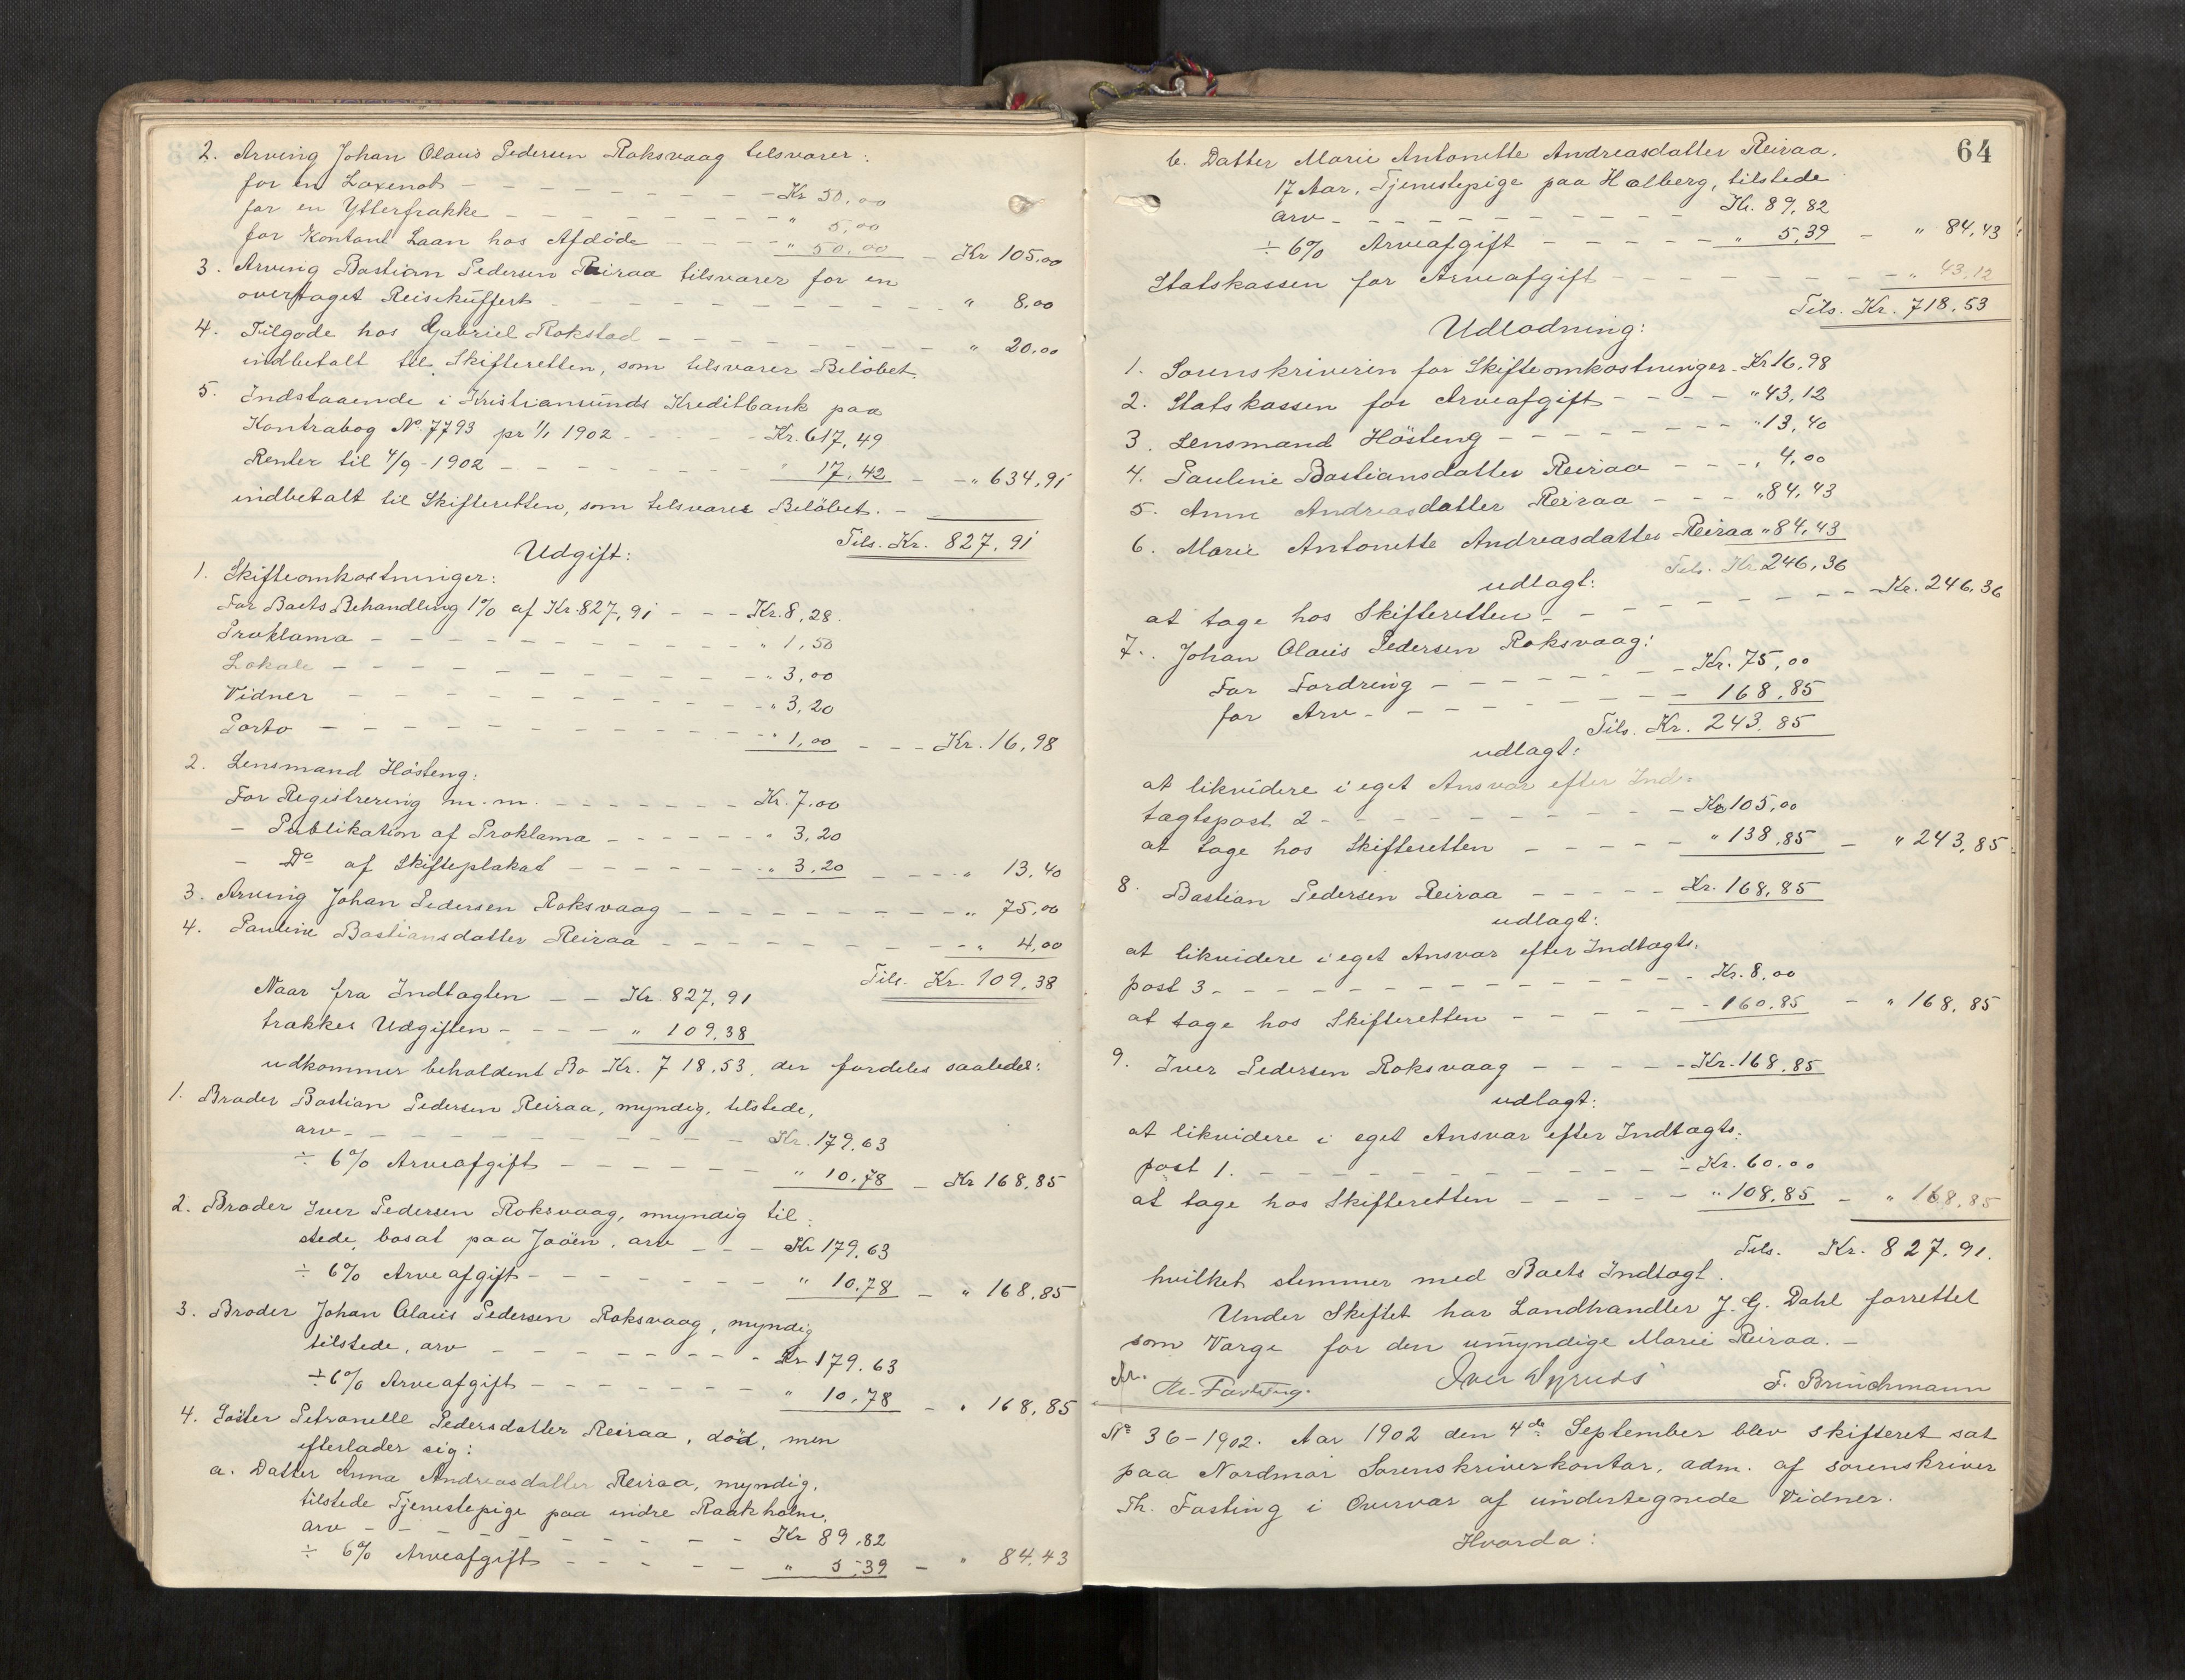 2. Arving Johan Olaus Pedersen Roksvaag tilsvarer:
for en Laxenot - - - Kr 50.00
for en Ytterfrakke - - - " 5,00
for Kontant Laan hos Afdöde - - - " 50.00 - Kr 105.00
3. Arving Bastian Pedersen Reiraa tilsvarer for en
overtaget Reisekuffert - - - " 8,00
4. Tilgode hos Gabriel Rokstad - - - " 20.00
indbetalt til Skifteretten, som tilsvarer Belöbet.
5. Indstaaende i Kristiansunds Kreditbank paa
Kontrabog No. 7793 pr 1/1 1902 - - - Kr. 617,49
Renter til 4/9-1902 - - - " 17,42 - - " 634,91
indbetalt til Skifteretten, som tilsvarer Belöbet. -
Tils. Kr. 827,91
Udgift:
1. Skifteomkostninger:
For Boets Behandling 1% af Kr. 827,91 - - - Kr. 8,28.
Proklama - - - " 1,50
Lokale - - - " 3,00
Vidner - - - " 3,20
Porto - - - " 1,00 - - - Kr. 16,98
2. Lensmand Hösteng:
For Registrering m.m. - - - Kr. 7.00
- Publikation af Proklama - - - " 3,20
- Do af Skifteplakat - - - " 3,20 - - - " 13,40
3. Arving Johan Pedersen Roksvaag - - - " 75,00
4. Pauline Bastiansdatter Reiraa - - - " 4,00
Tils. Kr. 109,38
Naar fra Indtagten - - Kr. 827,91
trækkes Udgiften - - - " 109,38
udkommer beholdent Bo Kr. 718,53, der fordeles saaledes:
1. Broder Bastian Pedersen Reiraa, myndig, tilstede,
arv - - - Kr. 179.63
÷ 6% Arveafgift - - - " 10,78 - Kr 168,85
2. Broder Iver Pedersen Roksvaag, myndig til-
stede, bosat paa Jaöen, arv - - - Kr 179.63
÷ 6% Arveafgift - - - " 10.78 - " 168,85
3. Broder Johan Olaus Pedersen Roksvaag, myndig
tilstede, arv - - - Kr 179.63
÷ 6% Arveafgift - - - " 10,78 - " 168,85
4. Söster Petronelle Pedersdatter Reiraa, död, men
efterlader sig:
a. Datter Anna Andreasdatter Reiraa, myndig,
tilstede Tjenestepige paa indre Raakholm,
arv - - - Kr 89,82
÷ 6% Arveafgift - - - " 5,39 - " 84,43
64
b. Datter Marie Antonette Andreasdatter Reiraa,
17 Aar, Tjenestepige paa Halberg, tilstede
arv - - - Kr. 89,82
÷ 6% Arveafgift - - - " 5,39 - " 84,43
Statskassen for Arveafgift - - - " 43,12
Tils. Kr. 718,53
Udlodning:
1. Sorenskriveren for Skifteomkostninger - Kr 16,98
2. Statskassen for Arveafgift - - - " 43,12
3. Lensmand Hösteng - - - " 13,40
4. Pauline Bastiansdatter Reiraa - - - " 4,00
5. Anne Andreasdatter Reiraa - - - " 84,43
6. Marie Antonette Andreasdatter Reiraa " 84,43
Tils. Kr 246,36
udlagt:
at tage hos Skifteretten - - - Kr. 246,36
7. Johan Olaus Pedersen Roksvaag:
For Fordring - - - Kr. 75,00
for Arv - - - 168,85
Tils. Kr. 243,85
udlagt:
at likvidere i eget Ansvar efter Ind-
tagtspost 2 - - - Kr 105,00
at tage hos Skifteretten - - - " 138,85 - " 243,85
8. Bastian Pedersen Reiraa - - - Kr. 168,85
udlagt:
at likvidere i eget Ansvar efter Indtagts-
post 3 - - - Kr. 8,00
at tage hos Skifteretten - - - 160,85 - " 168,85
9. Iver Pedersen Roksvaag - - - Kr. 168,85
udlagt:
at likvidere i eget Ansvar efter Indtagts-
post 1. - - - Kr. 60.00
at tage hos Skifteretten - - - " 108,85 - " 168,85
Tils. Kr. 827,91.
hvilket stemmer med Boets Indtagt.
Under Skiftet har Landhandler J. G. Dahl forrettet
som Værge for den umyndige Marie Reiraa. -
Th. Fasting. F. Brüchmann
No 36-1902. Aar 1902 den 4de September blev skifteret sat
paa Nordmör Sorenskriverkontor, adm. af sorenskriver
Th. Fasting i Overvær af undertegnede Vidner.
Hvorda: